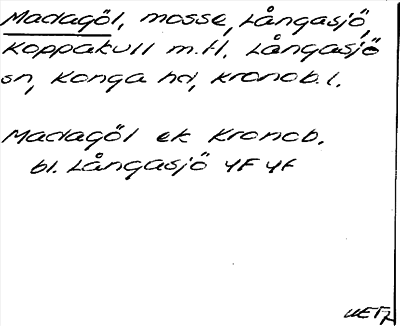 Madagöl, mosse, Långasjö,
Koppakull m.fl. Långasjö
sn, Konga hd, Kronob.l.
Madagöl ek Kronob.
bl. Långasjö 4F 4f